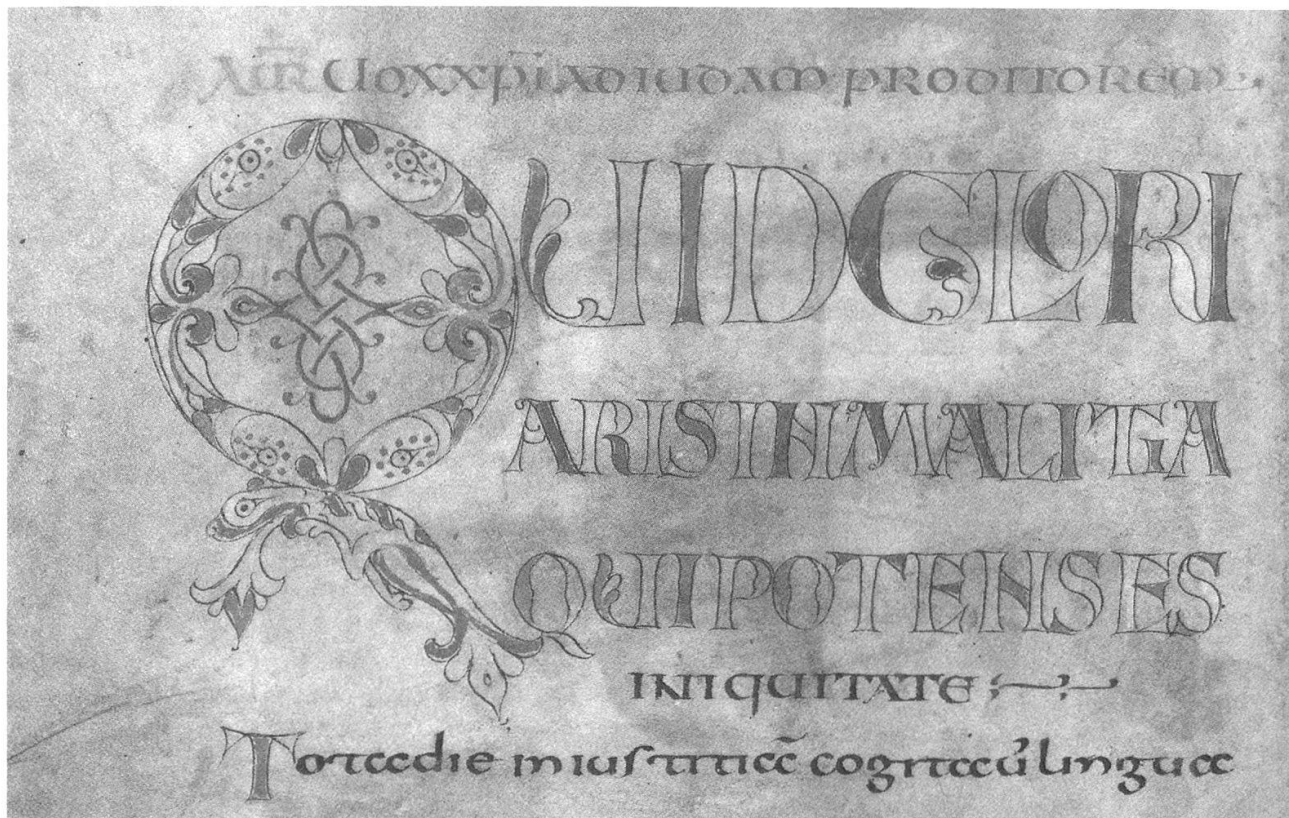 UOX XPI AD IUDAM PRODITOREM
QUID GLORI
ARIS IN MALITIA
QUI POTENS ES
INIQUITATE :~
Tota die iniustitiā cogitaū lingua